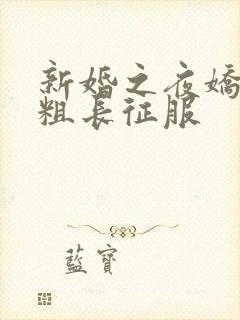 新婚之夜嬌
粗長征服
藍寶